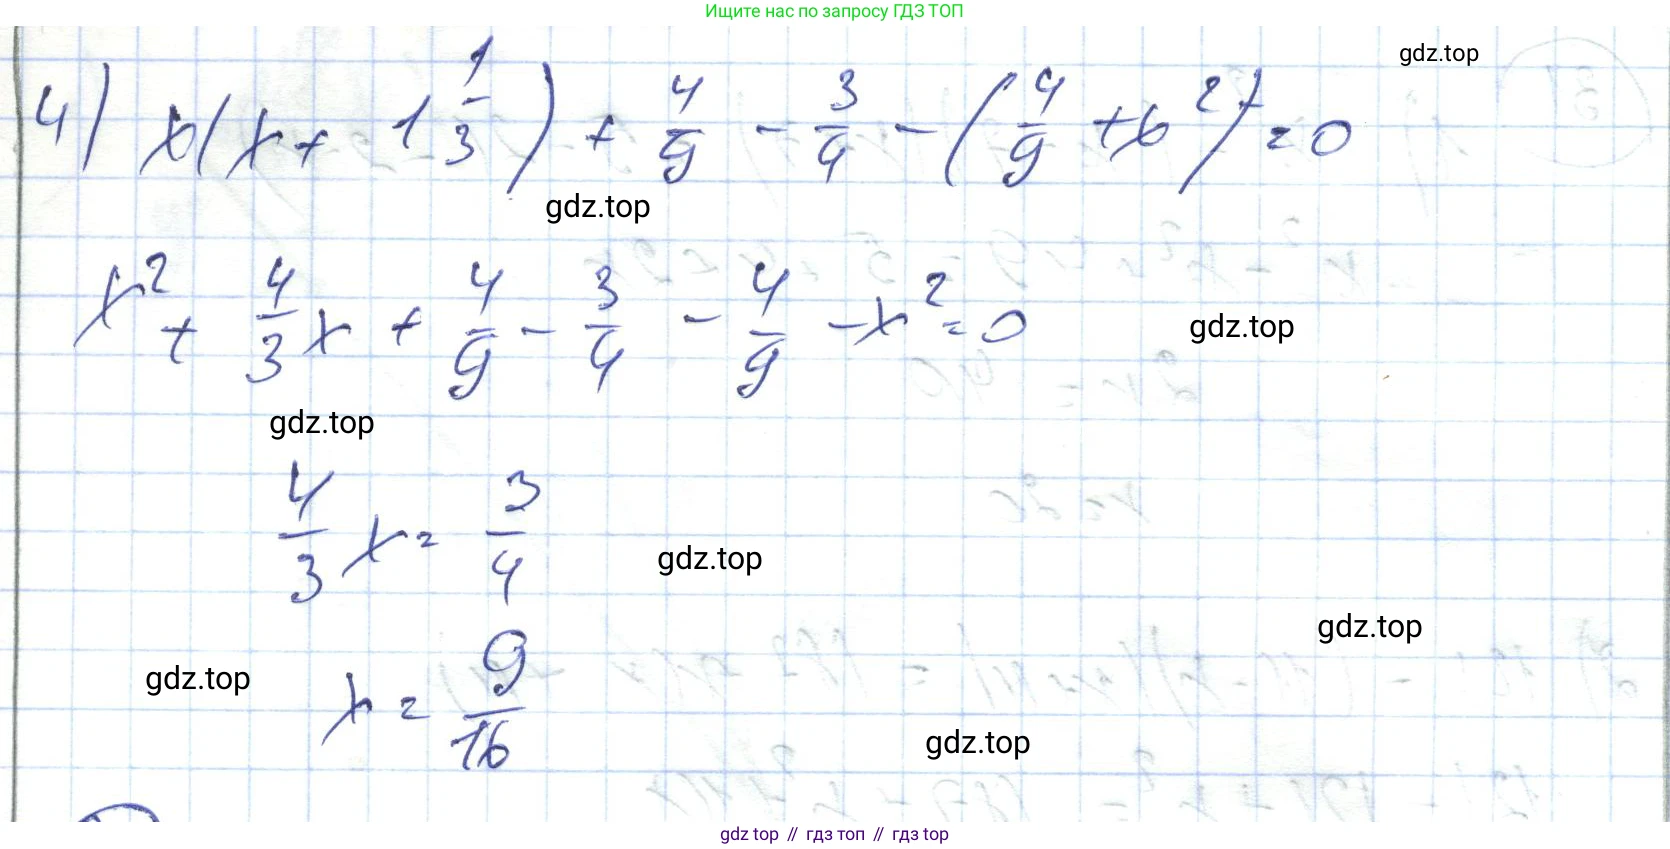 Ищите нас по запросу ГДЗ ТОП
gdz.top
4) x(x + 1 1/3) + 4/9 - 3/4 - (4/9 + x²) = 0
gdz.top
x² + 4/3 x + 4/9 - 3/4 - 4/9 - x² = 0
gdz.top
gdz.top
4/3 x = 3/4
gdz.top
gdz.top
x = 9/16
gdz.top
gdz.top
gdz top // гдз топ // гдз top